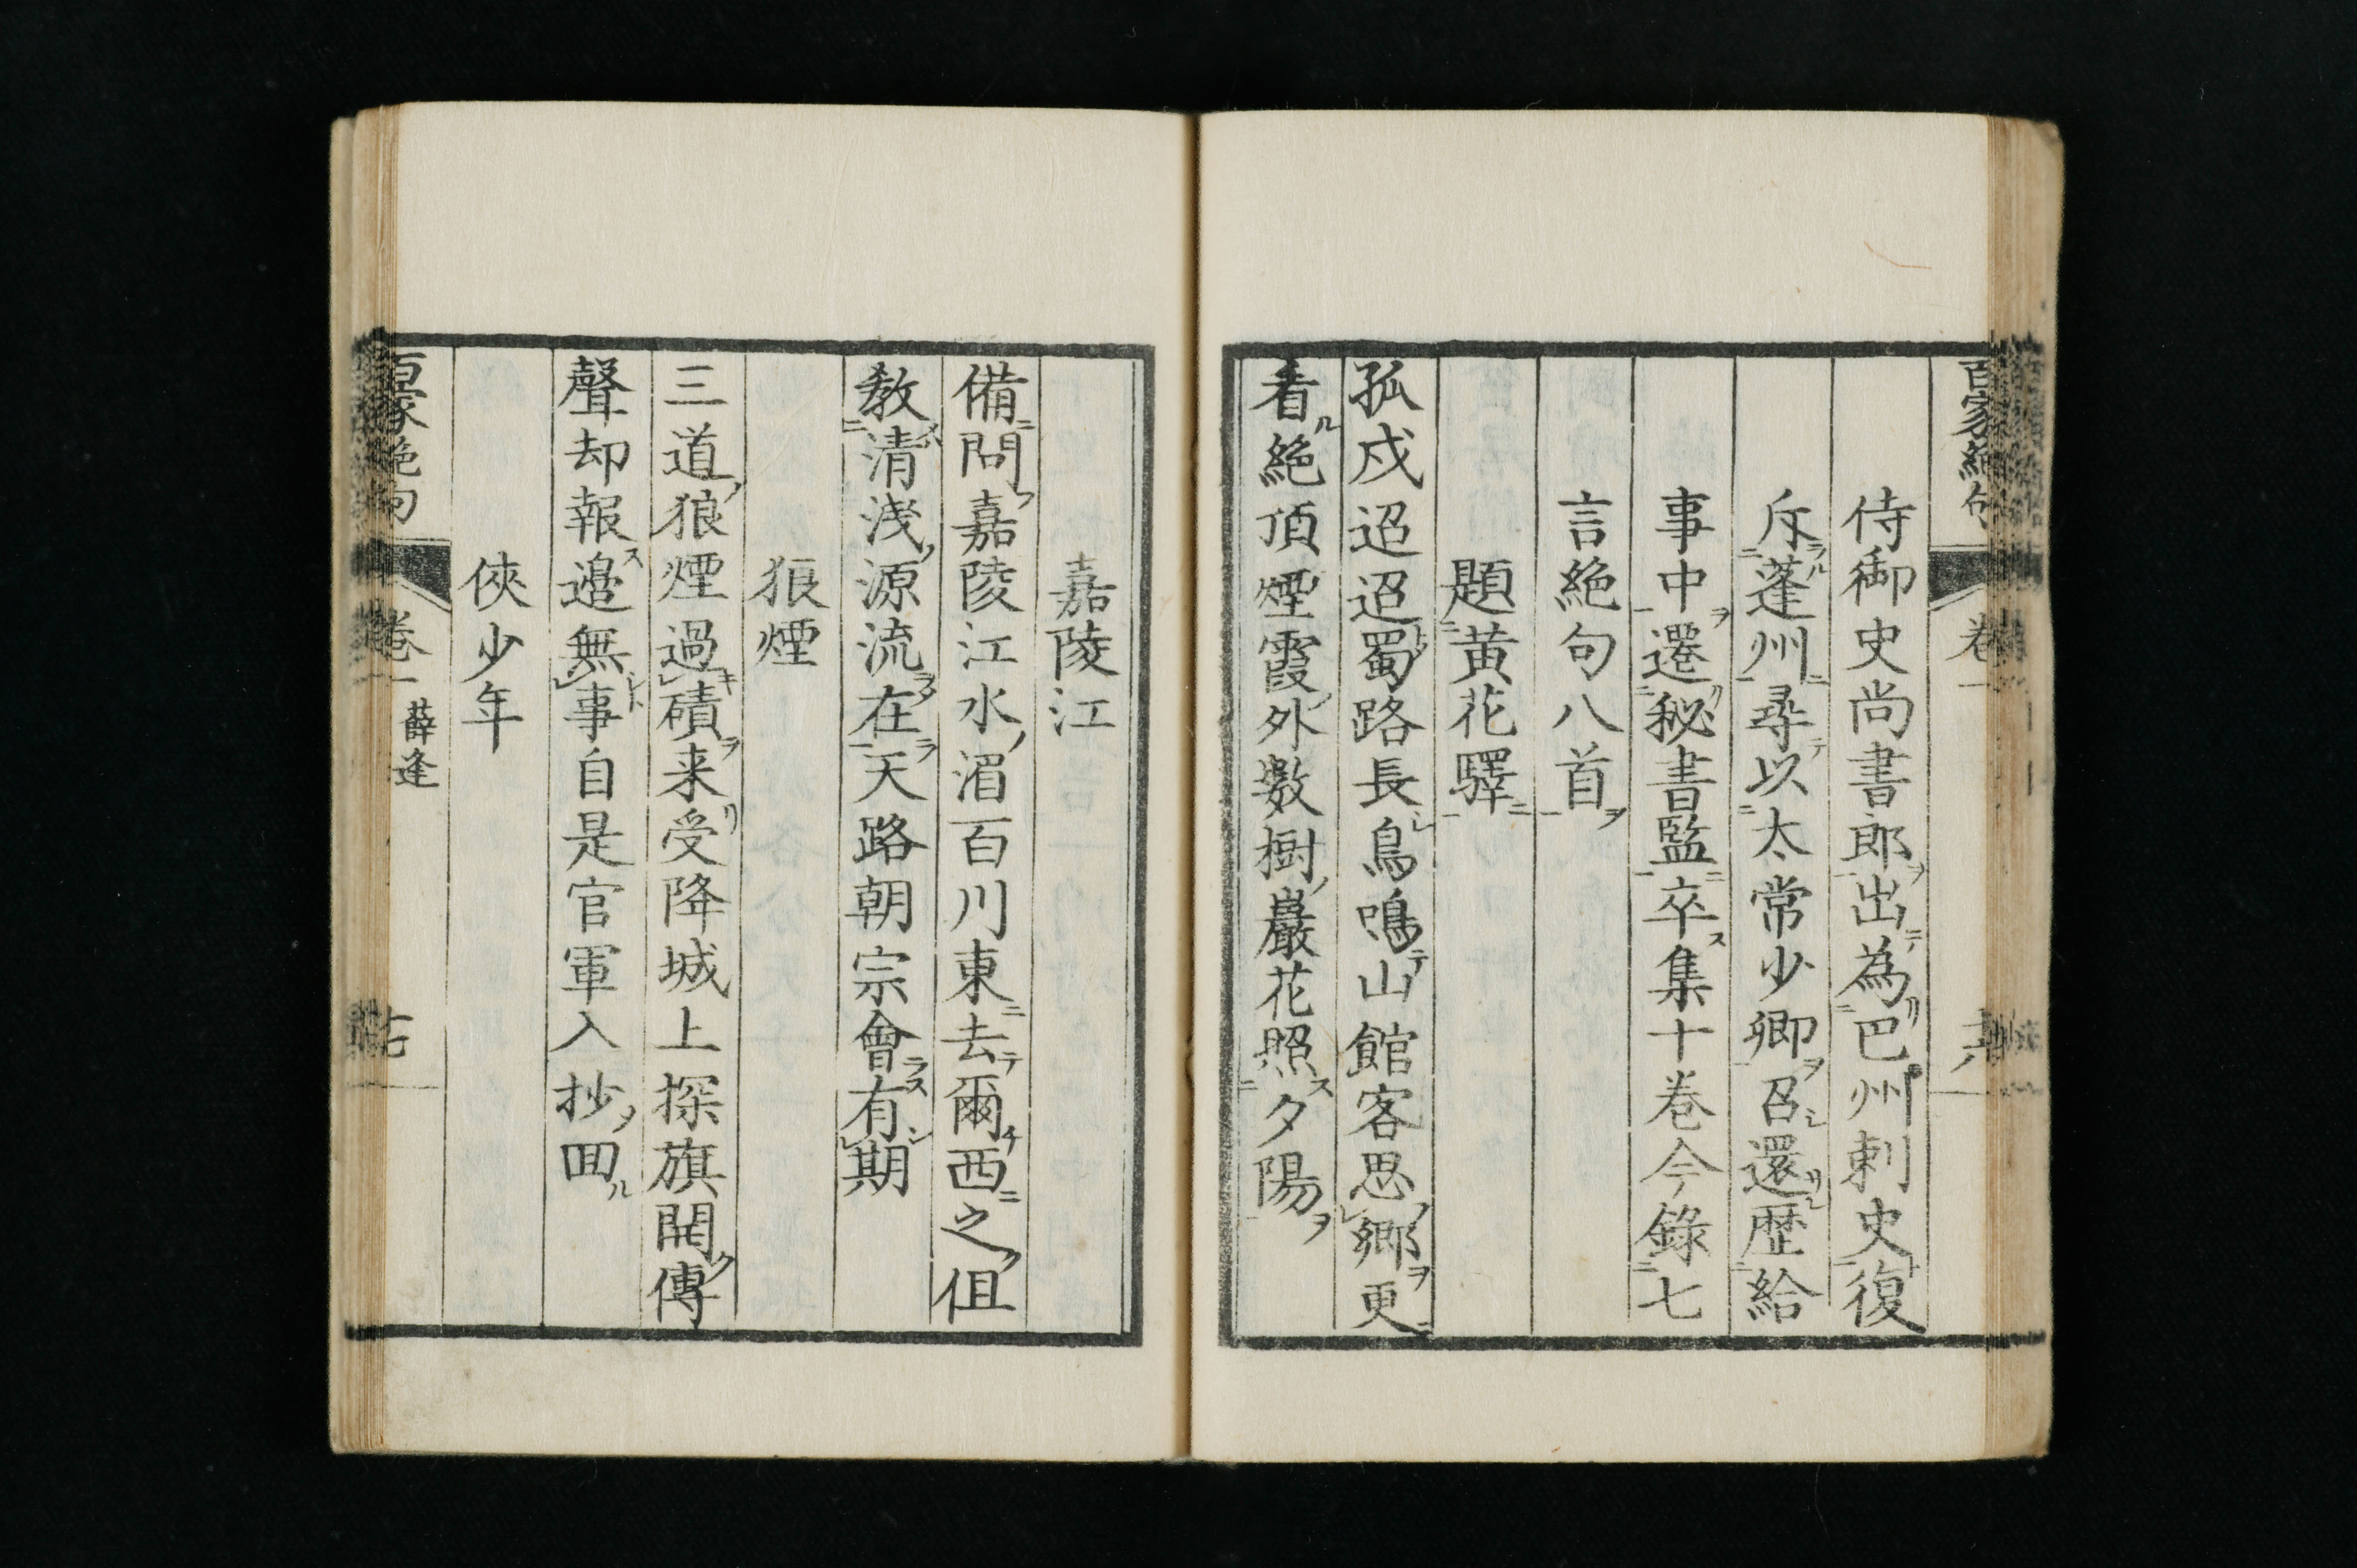 百家絶句 卷一
侍御史尚書郎出為巴州刺史復
斥蓬州尋以太常少卿召還歴給
事中遷秘書監卒集十卷今錄七
言絶句八首
題黄花驛
孤戍迢迢蜀路長鳥鳴山館客思郷更
看絶頂煙霞外數樹巖花照夕陽
嘉陵江
備問嘉陵江水湄百川東去爾西之但
教清淺源流在天路朝宗會有期
狼煙
三道狼煙過磧来受降城上探旗開傳
聲却報邉無事自是官軍入抄囬
俠少年
百家絶句 卷一 薛逢